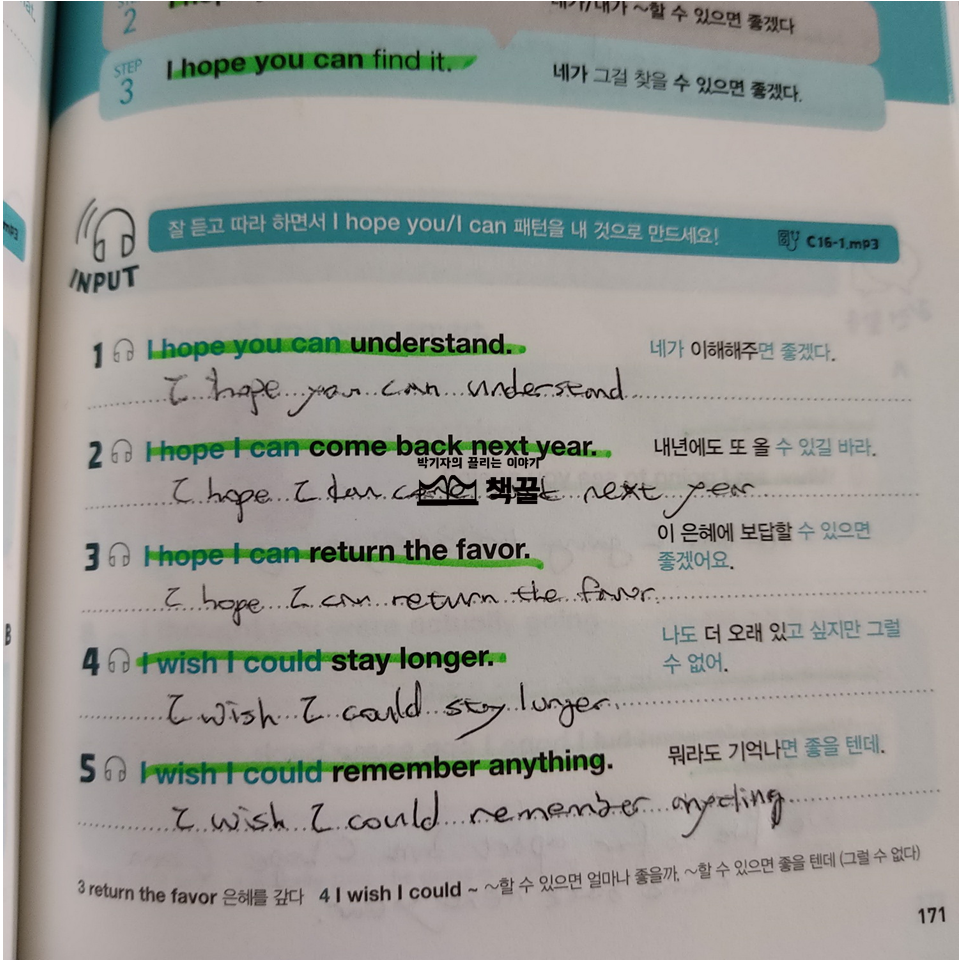 2
네가/내가 ~할 수 있으면 좋겠다
STEP 3
I hope you can find it.
네가 그걸 찾을 수 있으면 좋겠다.
INPUT
잘 듣고 따라 하면서 I hope you/I can 패턴을 내 것으로 만드세요!
C16-1.mp3
1 I hope you can understand.
네가 이해해주면 좋겠다.
I hope you can understand
2 I hope I can come back next year.
내년에도 또 올 수 있길 바라.
박기자의 끌리는 이야기
책끌
I hope I can come next year
3 I hope I can return the favor.
이 은혜에 보답할 수 있으면
좋겠어요.
I hope I can return the favor.
4 I wish I could stay longer.
나도 더 오래 있고 싶지만 그럴
수 없어.
I wish I could stay longer.
5 I wish I could remember anything.
뭐라도 기억나면 좋을 텐데.
I wish I could remember
3 return the favor 은혜를 갚다 4 I wish I could ~ ~할 수 있으면 얼마나 좋을까, ~할 수 있으면 좋을 텐데 (그럴 수 없다)
171